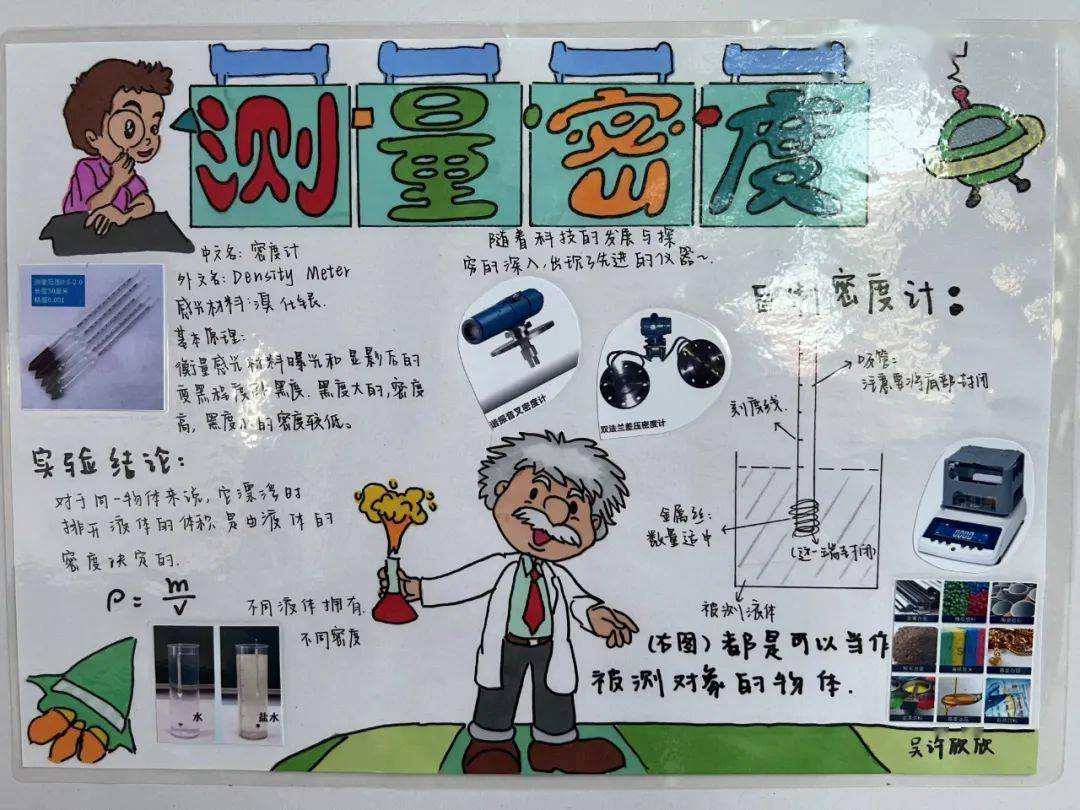 测量密度
中文名：密度计
外文名：Density Meter
感光材料：溴化银
基本原理：
衡量感光材料曝光和显影后的
变黑程度 黑度.黑度大的,密度
高,黑度 的密度较低。
测量范围0.6-2.0
长度30厘米
精度0.001
随着科技的发展与探
究的深入,出现了先进的仪器~
谐振音叉密度计
双法兰差压密度计
密度计：
吸管：
注意要将底部封闭
刻度线.
金属丝：
数量适中
(这一端 封闭)
被测液体
实验结论：
对于同一物体来说,它漂浮时
排开液体的体积是由液体的
密度决定的.
ρ = m/v
不同液体拥有
不同密度
水
盐水
(右图)都是可以当作
被测对象的物体.
吴许欣欣